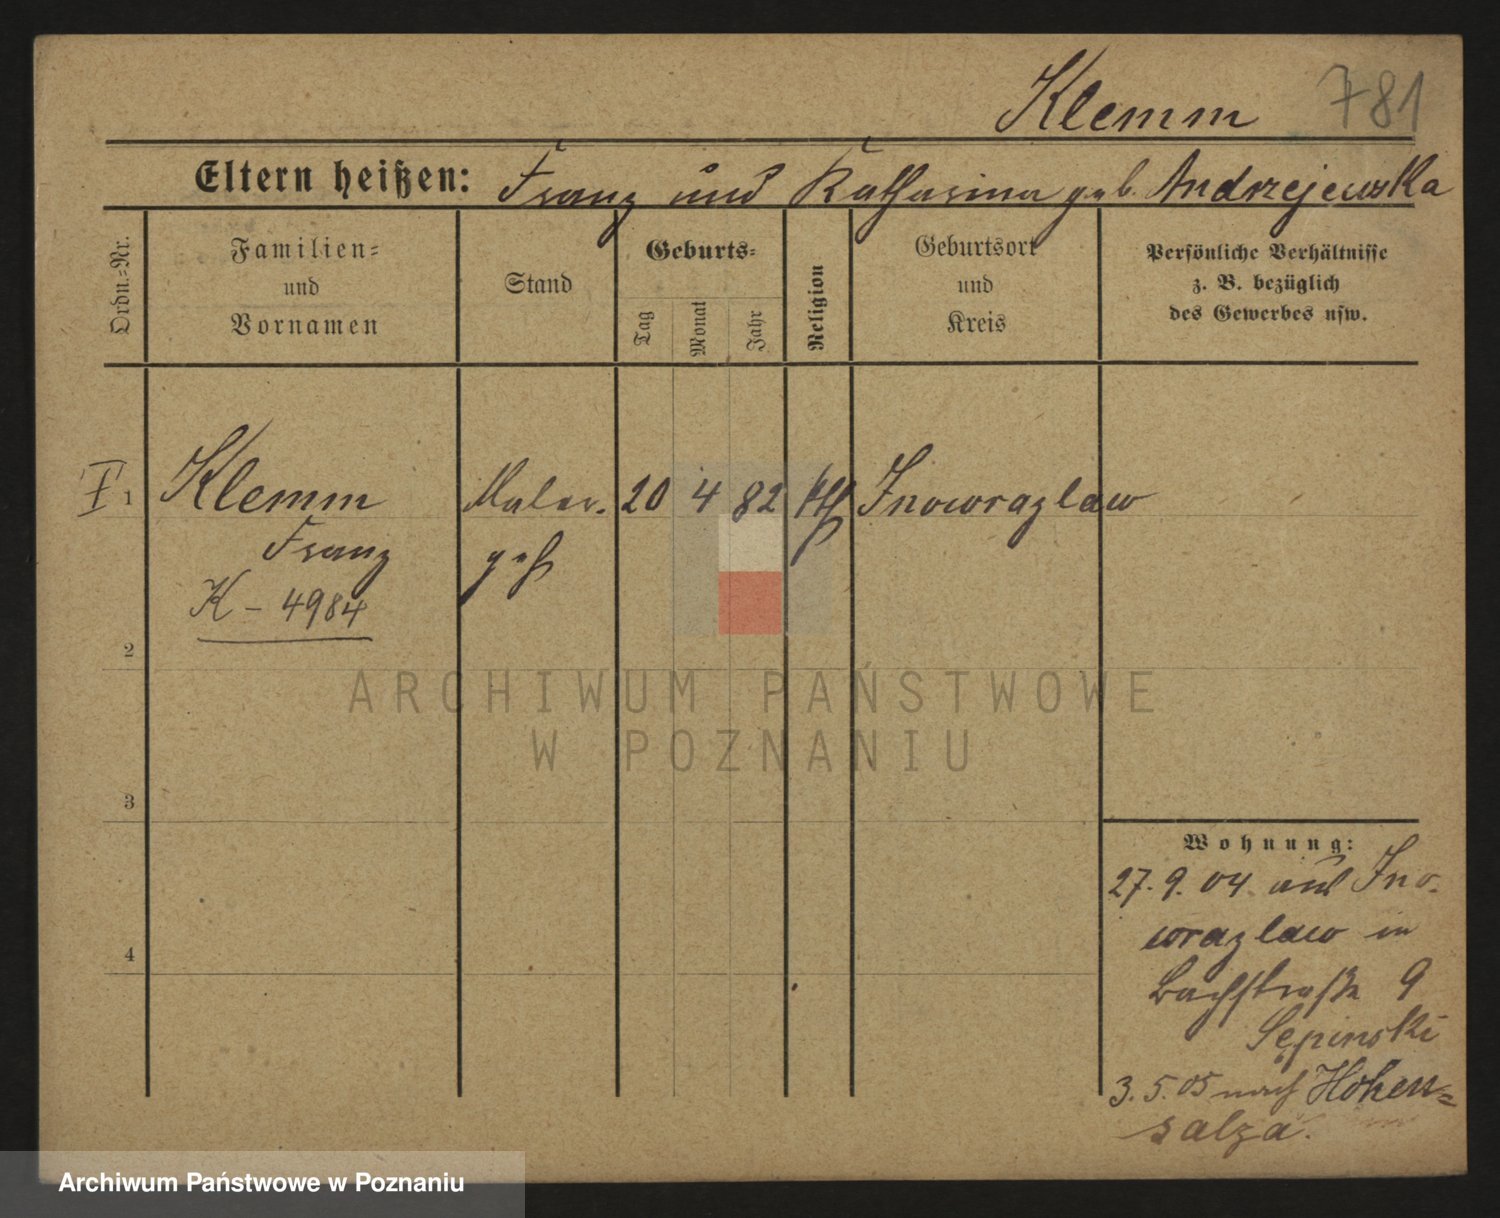 Klemm 781
Eltern heißen: Franz und Katharina geb. Andrzejewska
Ordn.-Nr.
Familien-
und
Vornamen
Stand
Geburts-
Tag
Monat
Jahr
Religion
Geburtsort
und
Kreis
Persönliche Verhältnisse
z. B. bezüglich
des Gewerbes usw.
I 1 Klemm Maler. 20 4 82 kth Inowrazlaw
Franz geh
K - 4984
2
3
4
ARCHIWUM PAŃSTWOWE
W POZNANIU
Wohnung:
27.9.04 aus Ino-
wrazlaw in
Bachstraße 9
Sępinski
3.5.05 nach Hohen=
salza.
Archiwum Państwowe w Poznaniu